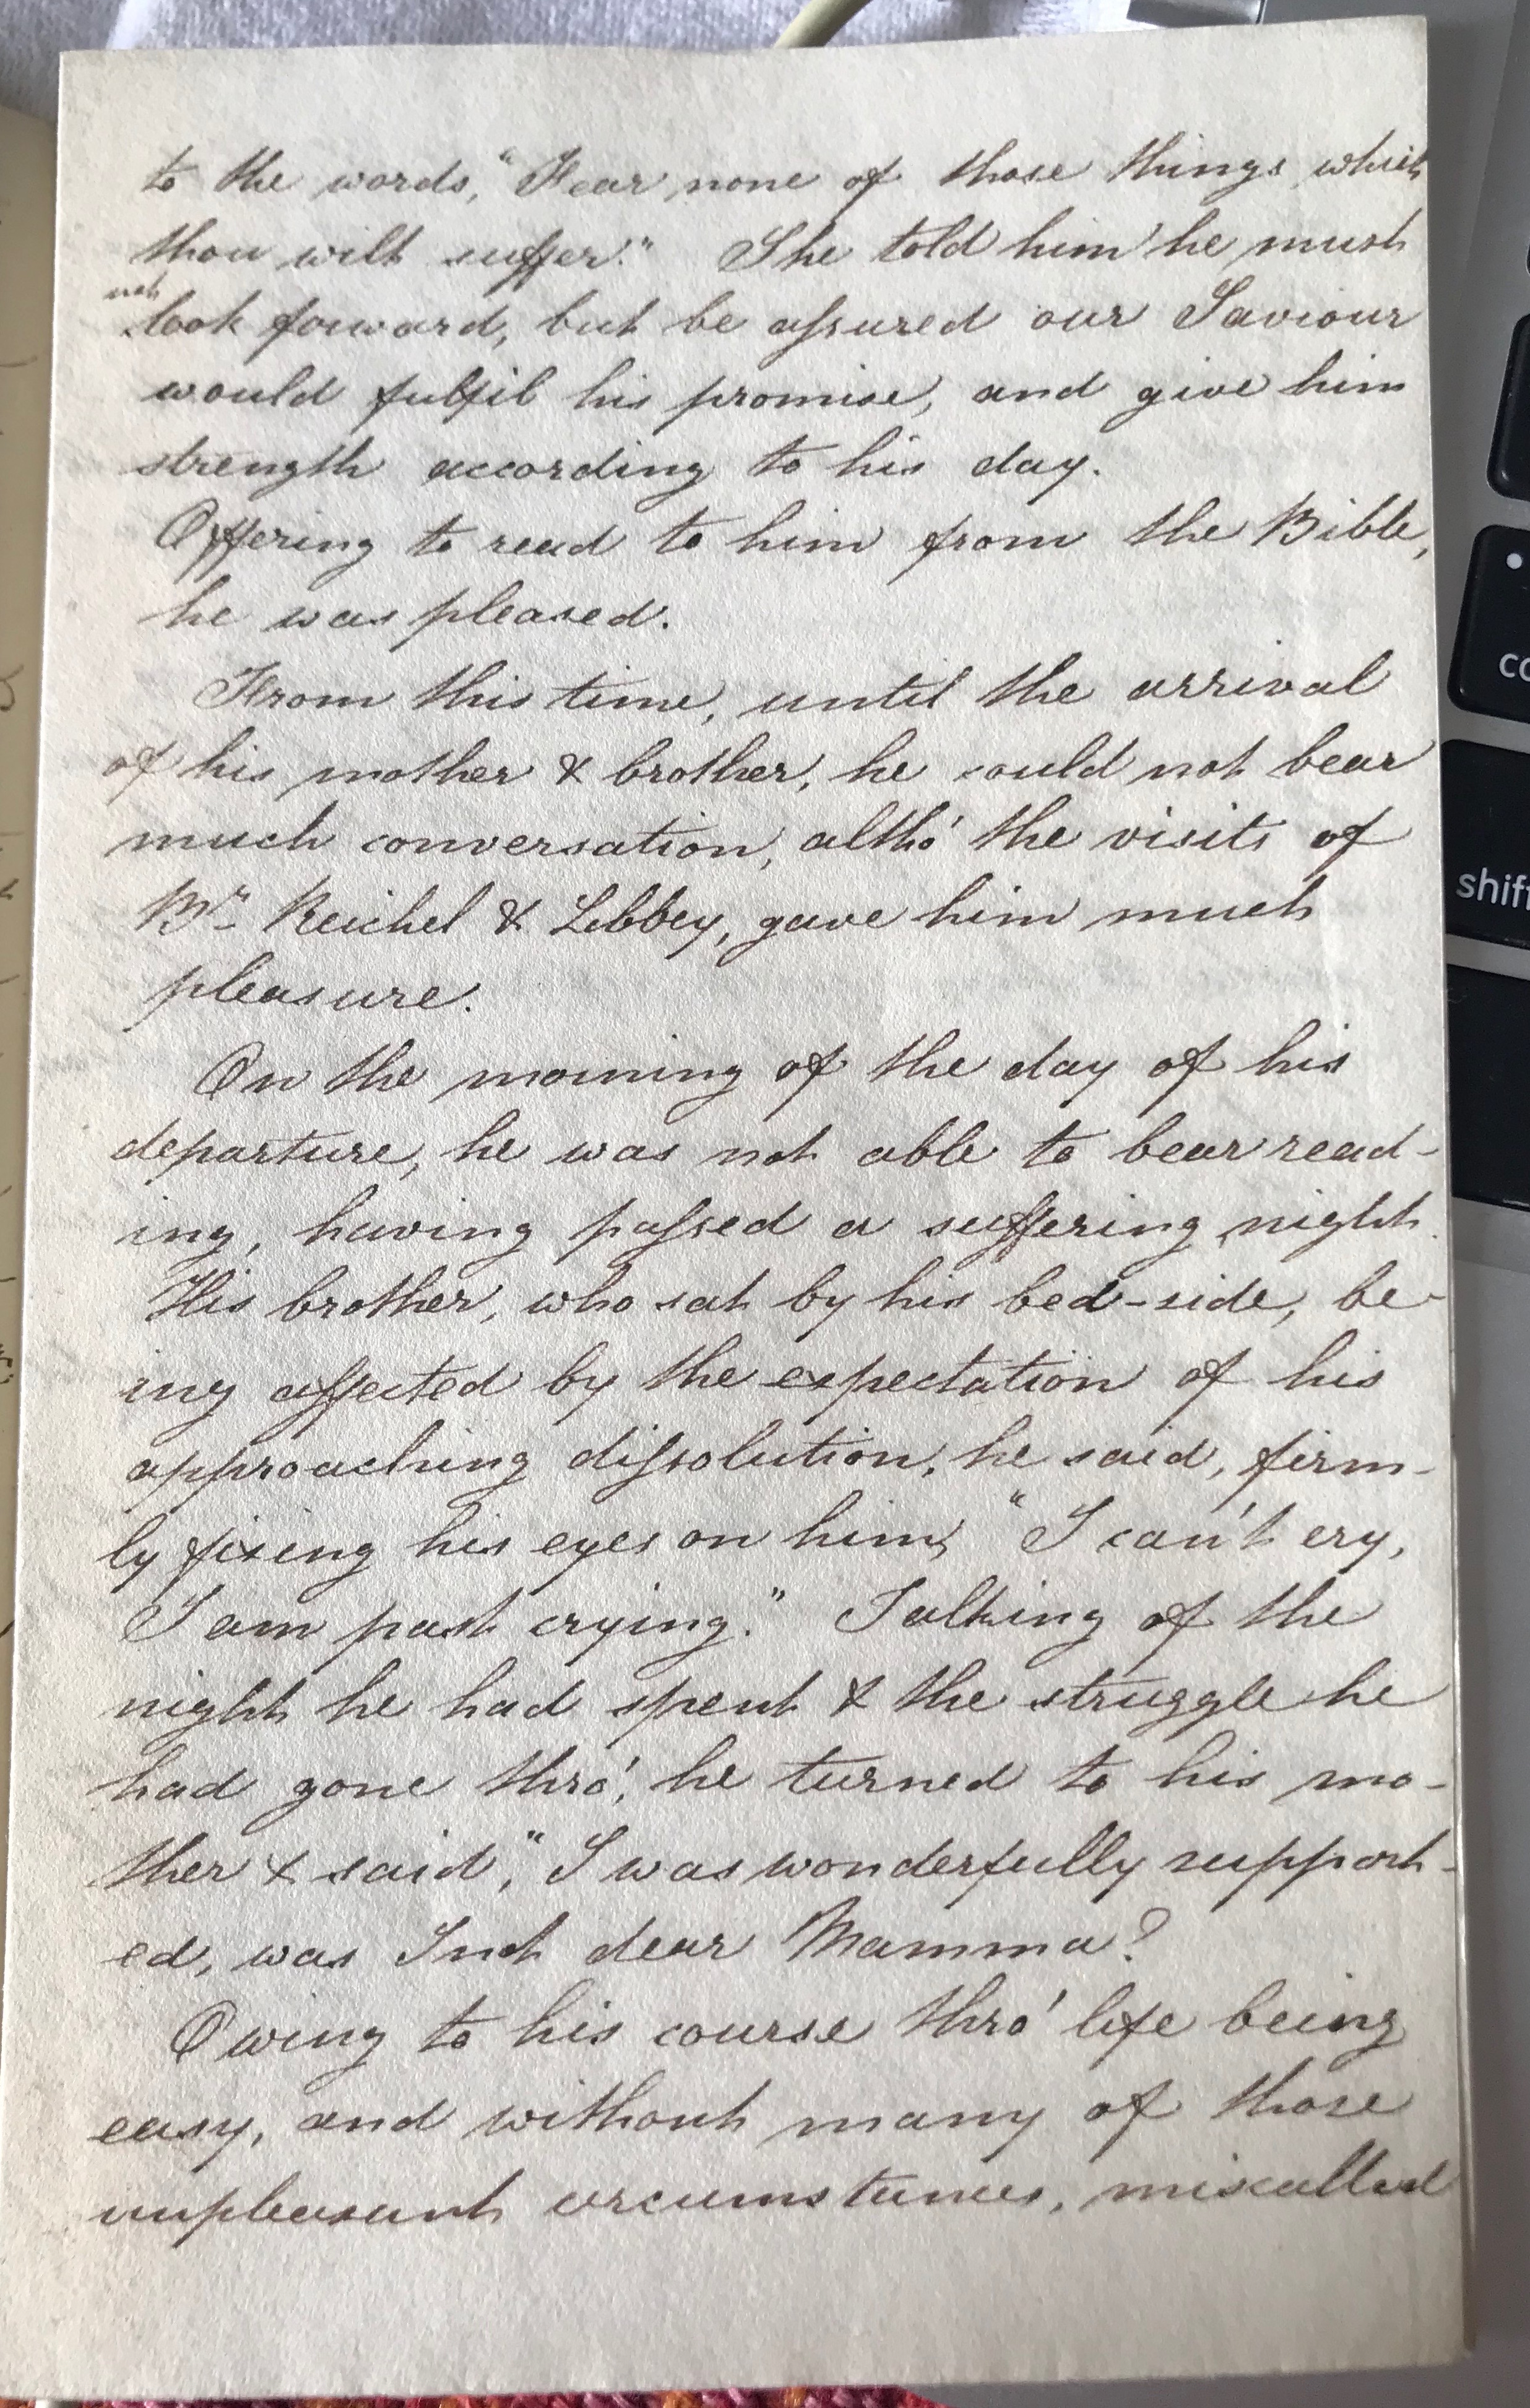 to the words, "Fear none of those things which
thou wilt suffer." She told him he must
not
look forward, but be aſsured our Saviour
would fulfil his promise, and give him
strength according to his day.
Offering to read to him from the Bible,
he was pleased.
From this time, until the arrival
of his mother & brother, he could not bear
much conversation, altho' the visits of
Brn Reichel & Libbey, gave him much
pleasure.
On the morning of the day of his
departure, he was not able to bear read-
ing, having paſsed a suffering night.
His brother, who sat by his bed-side, be-
ing affected by the expectation of his
approaching diſsolution, he said, firm-
ly fixing his eyes on him, "I can't cry,
I am past crying." Talking of the
night he had spent & the struggle he
had gone thro', he turned to his mo-
ther & said, "I was wonderfully support-
ed, was I not dear Mamma?
Owing to his course thro' life being
easy, and without many of those
unpleasant circumstances, miscalled
co
shift